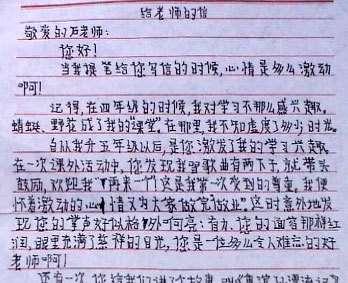 给老师的信
敬爱的万老师:
您好!
当我提笔给您写信的时候,心情是多么激动
啊!
记得,在四年级的时候,我对学习不那么感兴趣。
蜻蜓、野花成了我的“课堂”。在那里,我不知虚度了多少时光。
自从我升五年级以后,是您激发了我的学习兴趣
在一次课外活动中,您发现我唱歌曲有两下子,就带头
鼓励,欢迎我“再来一个”这是我第一次受到的尊重,我便
怀着激动的心情又为大家做完做业”。这时意外地发
现您的掌声好似格外响亮:有力,您的面容那样红
润,眼里充满了慈祥的目光,您是一位多么令人难忘的好
老师啊!
还有一次,您给我们讲了个故事,叫